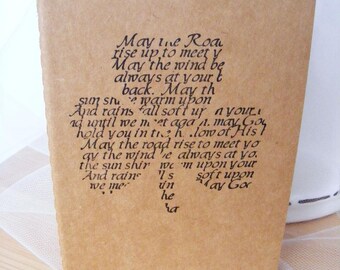 May the Road
rise up to meet y
May the wind be
always at your b
back. May th
sun shine warm upon
And rains fall soft up n your
nd until we met again, may Go
hold you in the h low of His
May the road rise to meet yo
ay the wind be always at yo
the sun shin warm upon your
And rains ll s soft upon
we mee in May Go
he
ha